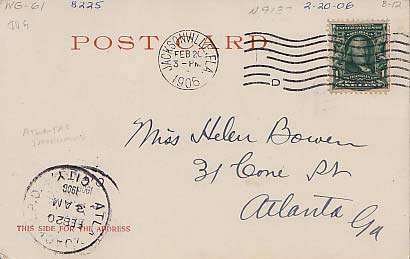 WG-61 8225 N913- 2-20-06 8-12
POST CARD
JACKSONVILLE, FLA.
FEB 20
3-PM
1906
D
Miss Helen Bowen
31 Cone St
Atlanta
Ga
ATL
CITY
3 AM
FEB 20
THIS SIDE FOR THE ADDRESS